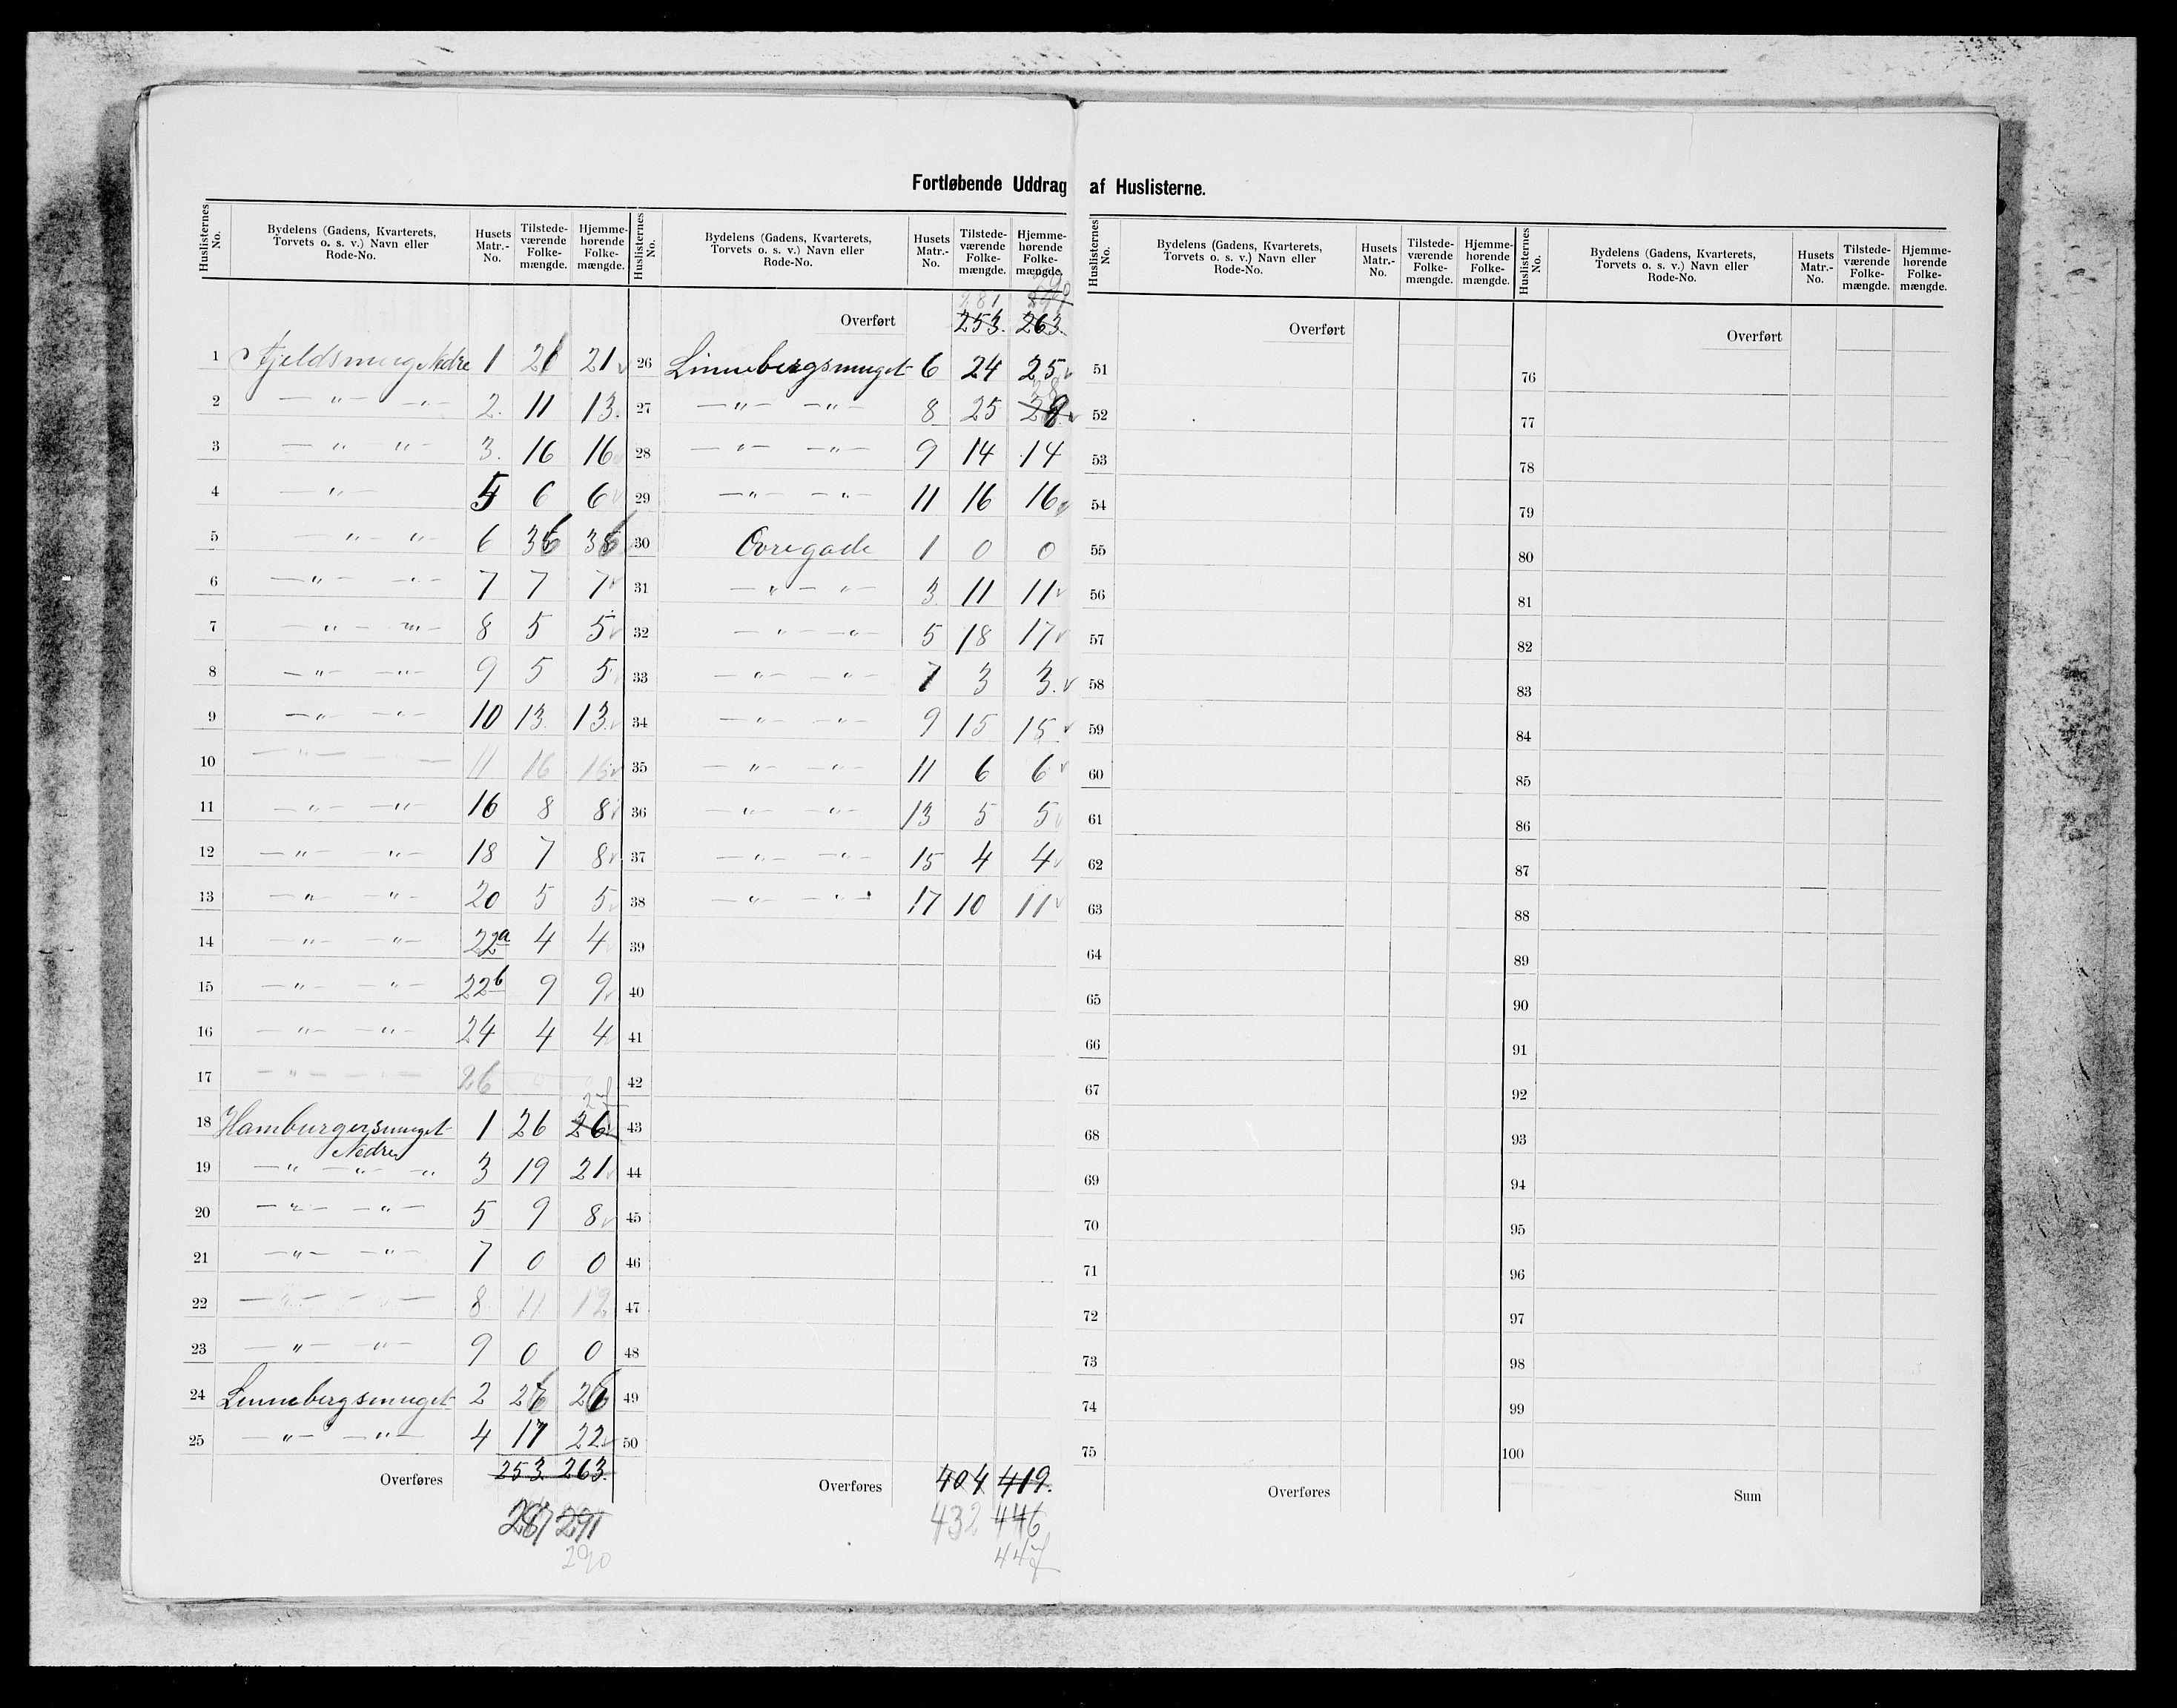 Fortløbende Uddrag af Huslisterne.
Huslisternes No. | Bydelens (Gadens, Kvarterets, Torvets o. s. v.) Navn eller Rode-No. | Husets Matr.-No. | Tilstedeværende Folkemængde. | Hjemmehørende Folkemængde.
1 Fjeldsmug Nedre 1 21
2 — " — — " — 2. 11 13.
3 — " " — 3. 16 16
4 — " — 5 6 6
5 — " — " — 6 36 36
6 — " — — " — 7 7 7
7 — " — " — 8 5 5
8 — " — — " — 9 5 5
9 — " — — " — 10 13. 13.
10 — " — — 11 16 16
11 — " — — " — 16 8 8
12 — " — — " — 18 7 8
13 — " — — " — 20 5 5
14 — " — — " — 22a 4 4
15 — " — — " — 22b 9 9
16 — " — — " — 24 4 4
17 — " — — " — 26
18 Hamburgersmuget Nedre 1 26 26 27
19 — " — " — " 3 19 21
20 — " — — " — 5 9 8
21 — " — — " — 7 0 0
22 — " — — " — 8 11 12
23 — " — — " — 9 0 0
24 Linnebergsmuget 2 26 26
25 — " — — " — 4 17 22
Overføres 253. 263.
281 291
290
Overført 253. 263.
281 290
26 Linnebergsmuget 6 24 25
27 — " — — " — 8 25 28
28 — " — — " — 9 14 14
29 — " — — " — 11 16 16
30 Øvregade 1 0 0
31 — " — " — 3. 11 11
32 — " — " — 5 18 17
33 — " — — " — 7 3 3.
34 — " — — " — 9 15 15
35 — " — — " — 11 6 6
36 — " — — " — 13 5 5
37 — " — — " — 15 4 4
38 — " — — " — 17 10 11
39
40
41
42
43
44
45
46
47
48
49
50
Overføres 404 419.
432 446
447
Huslisternes No. | Bydelens (Gadens, Kvarterets, Torvets o. s. v.) Navn eller Rode-No. | Husets Matr.-No. | Tilstedeværende Folkemængde. | Hjemmehørende Folkemængde.
Overført
51
52
53
54
55
56
57
58
59
60
61
62
63
64
65
66
67
68
69
70
71
72
73
74
75
Overføres
Overført
76
77
78
79
80
81
82
83
84
85
86
87
88
89
90
91
92
93
94
95
96
97
98
99
100
Sum